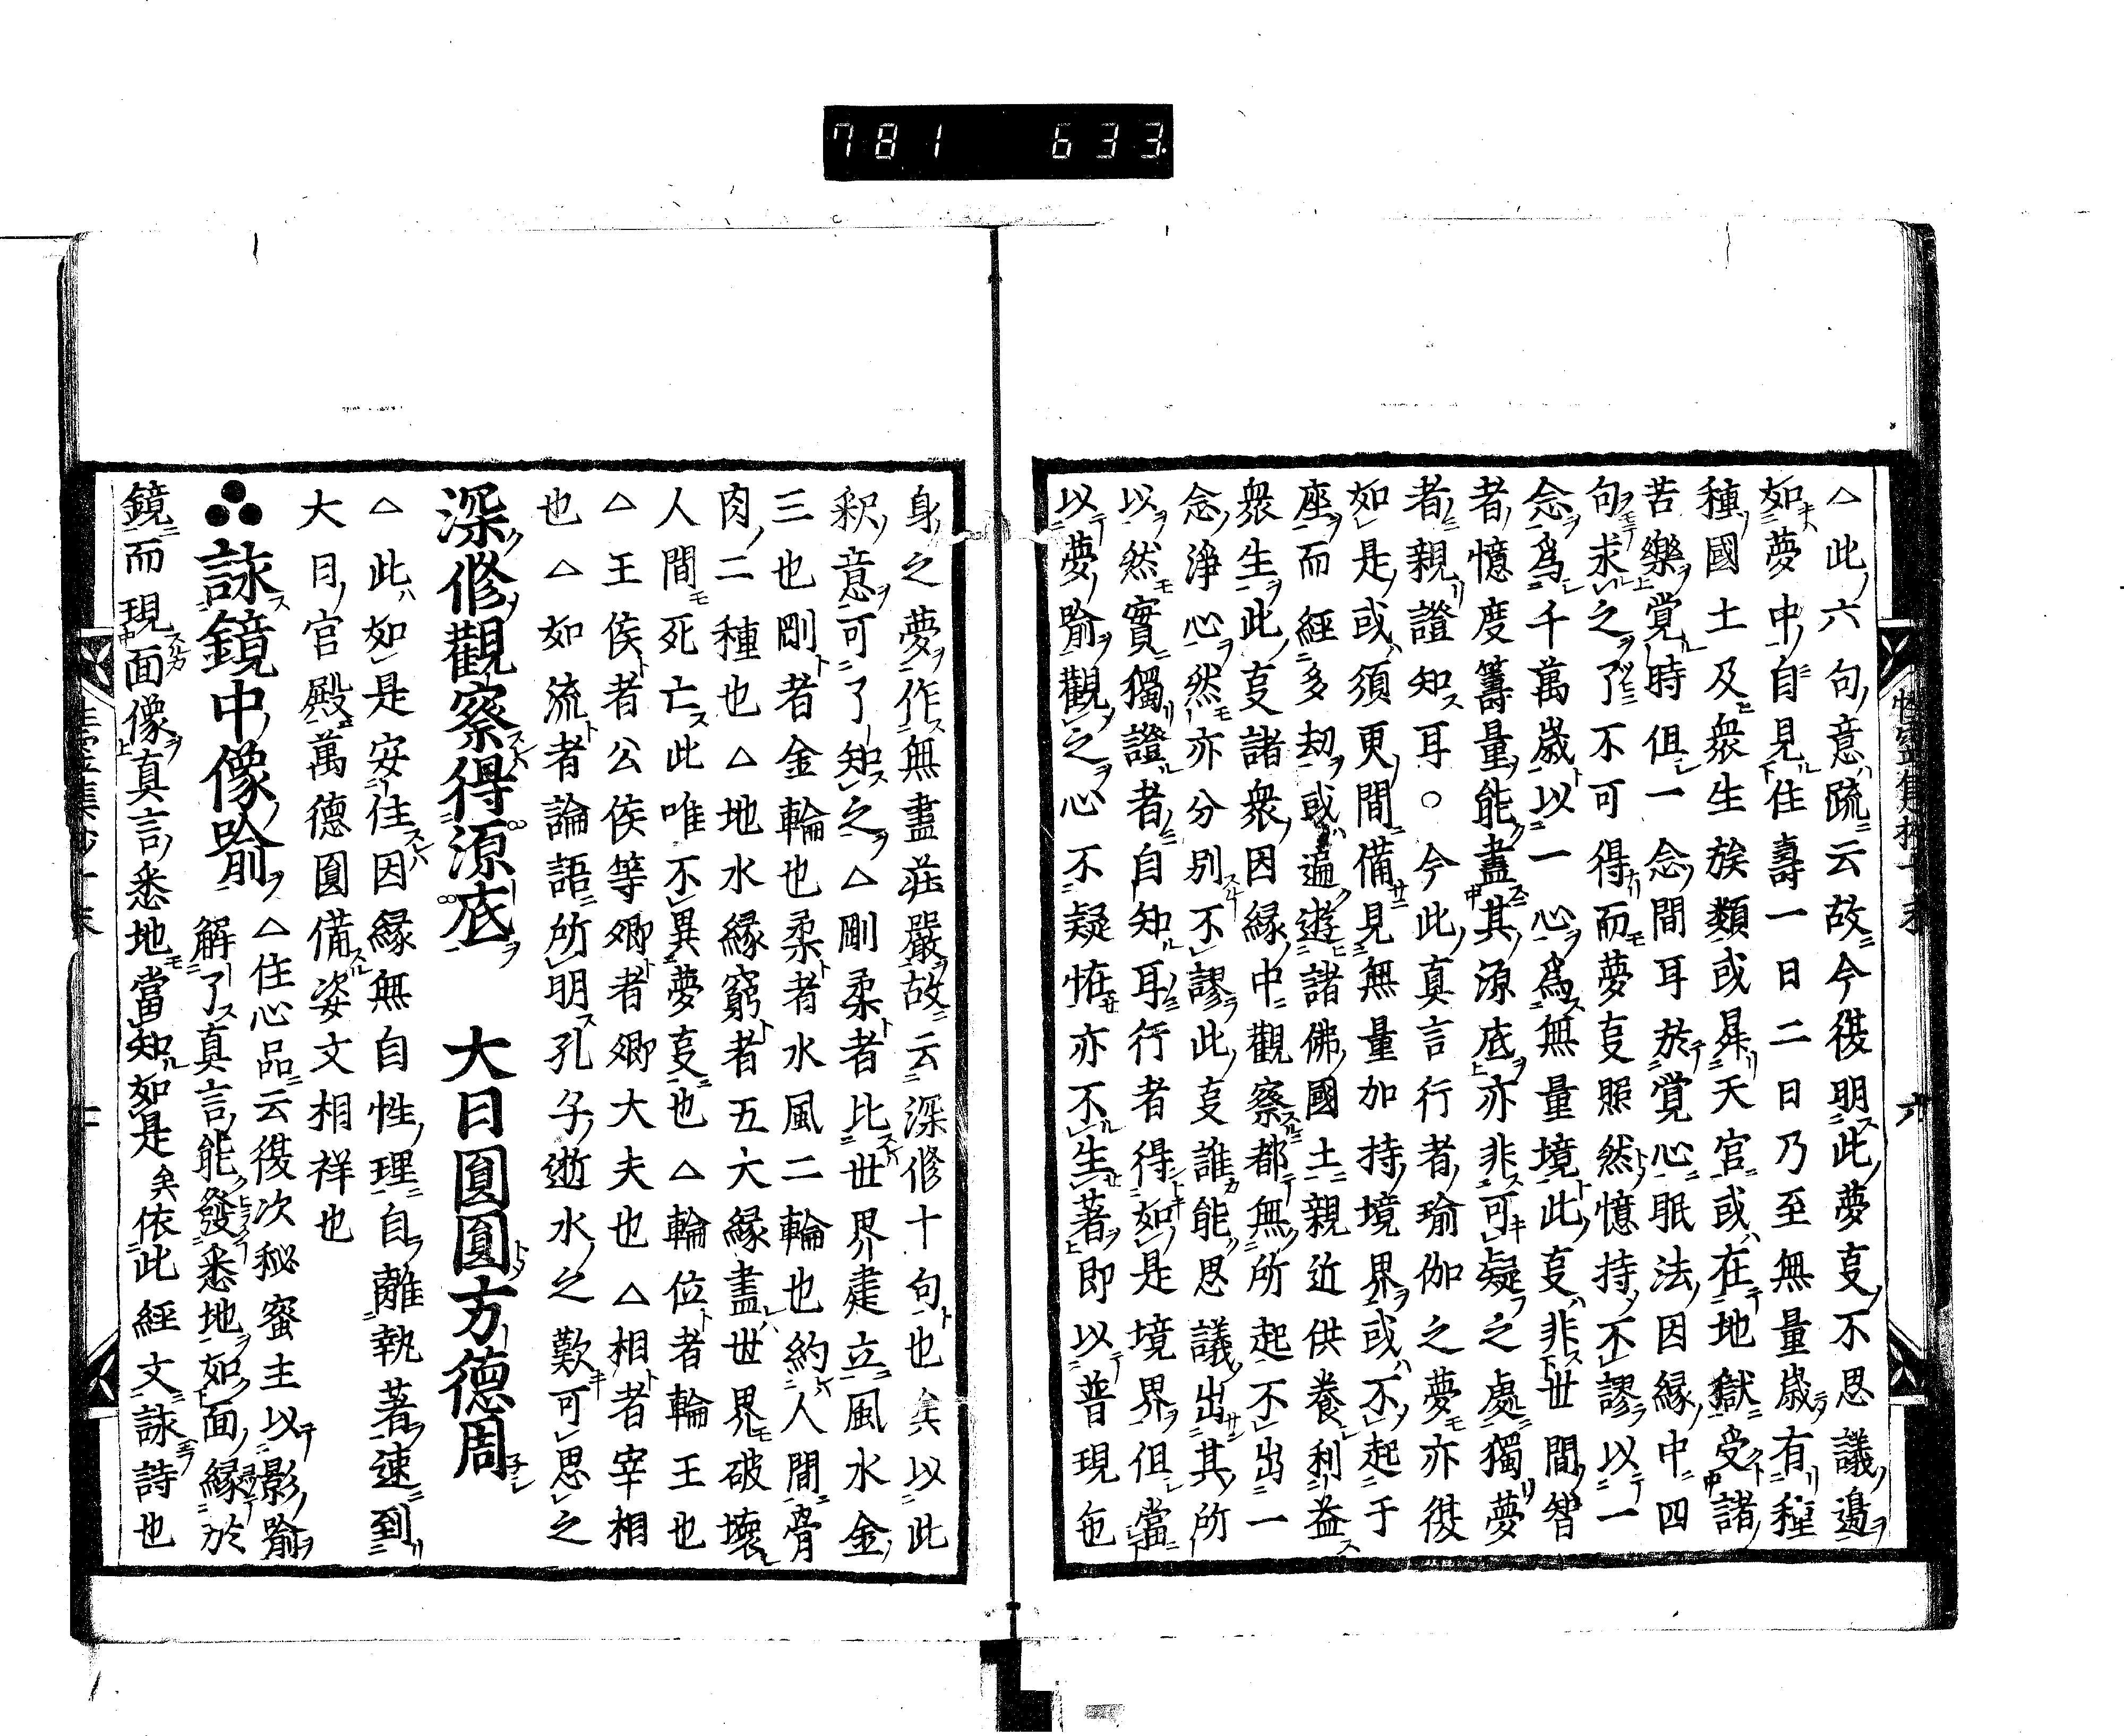 781 633
△此六句意疏云故今復明此夢叓不思議邊
如夢中自見住壽一日二日乃至無量歳有種
種國土及衆生族類或昇天宮或在地獄受諸
苦樂覚時但一念間耳於覚心眠法因縁中四
句求之了不可得而夢叓照然憶持不謬以一
念爲千萬歳以一心爲無量境此叓非世間智
者憶度籌量能盡其源底亦非可疑之處獨夢
者親證知耳○今此真言行者瑜伽之夢亦復
如是或須更間備見無量加持境界或不起于
座而經多劫或遍遊諸佛國土親近供養利益
衆生此叓諸衆因縁中觀察都無所起不出一
念淨心然亦分別不謬此叓誰能思議出其所
以然實獨證者自知耳行者得如是境界但當
以夢喻觀之心不疑恠亦不生著即以普現色
六
身之夢作無盡莊嚴故云深修十句也矣以此
釈意可了知之△剛柔者比世界建立風水金
三也剛者金輪也柔者水風二輪也約人間骨
肉二種也△地水縁窮者五大縁盡世界破壊
人間死亡此唯不異夢叓也△輪位者輪王也
△王侯者公侯等卿者卿大夫也△相者宰相
也△如流者論語所明孔子逝水之歎可思之
深修觀察得源底　大日圓圓万德周
△此如是安住因縁無自性理自離執著速到
大日宮殿萬德圓備姿文相祥也
詠鏡中像喻 △住心品云復次秘蜜主以影喻
解了真言能發悉地如面縁於
鏡而現面像真言悉地當知如是矣依此經文詠詩也